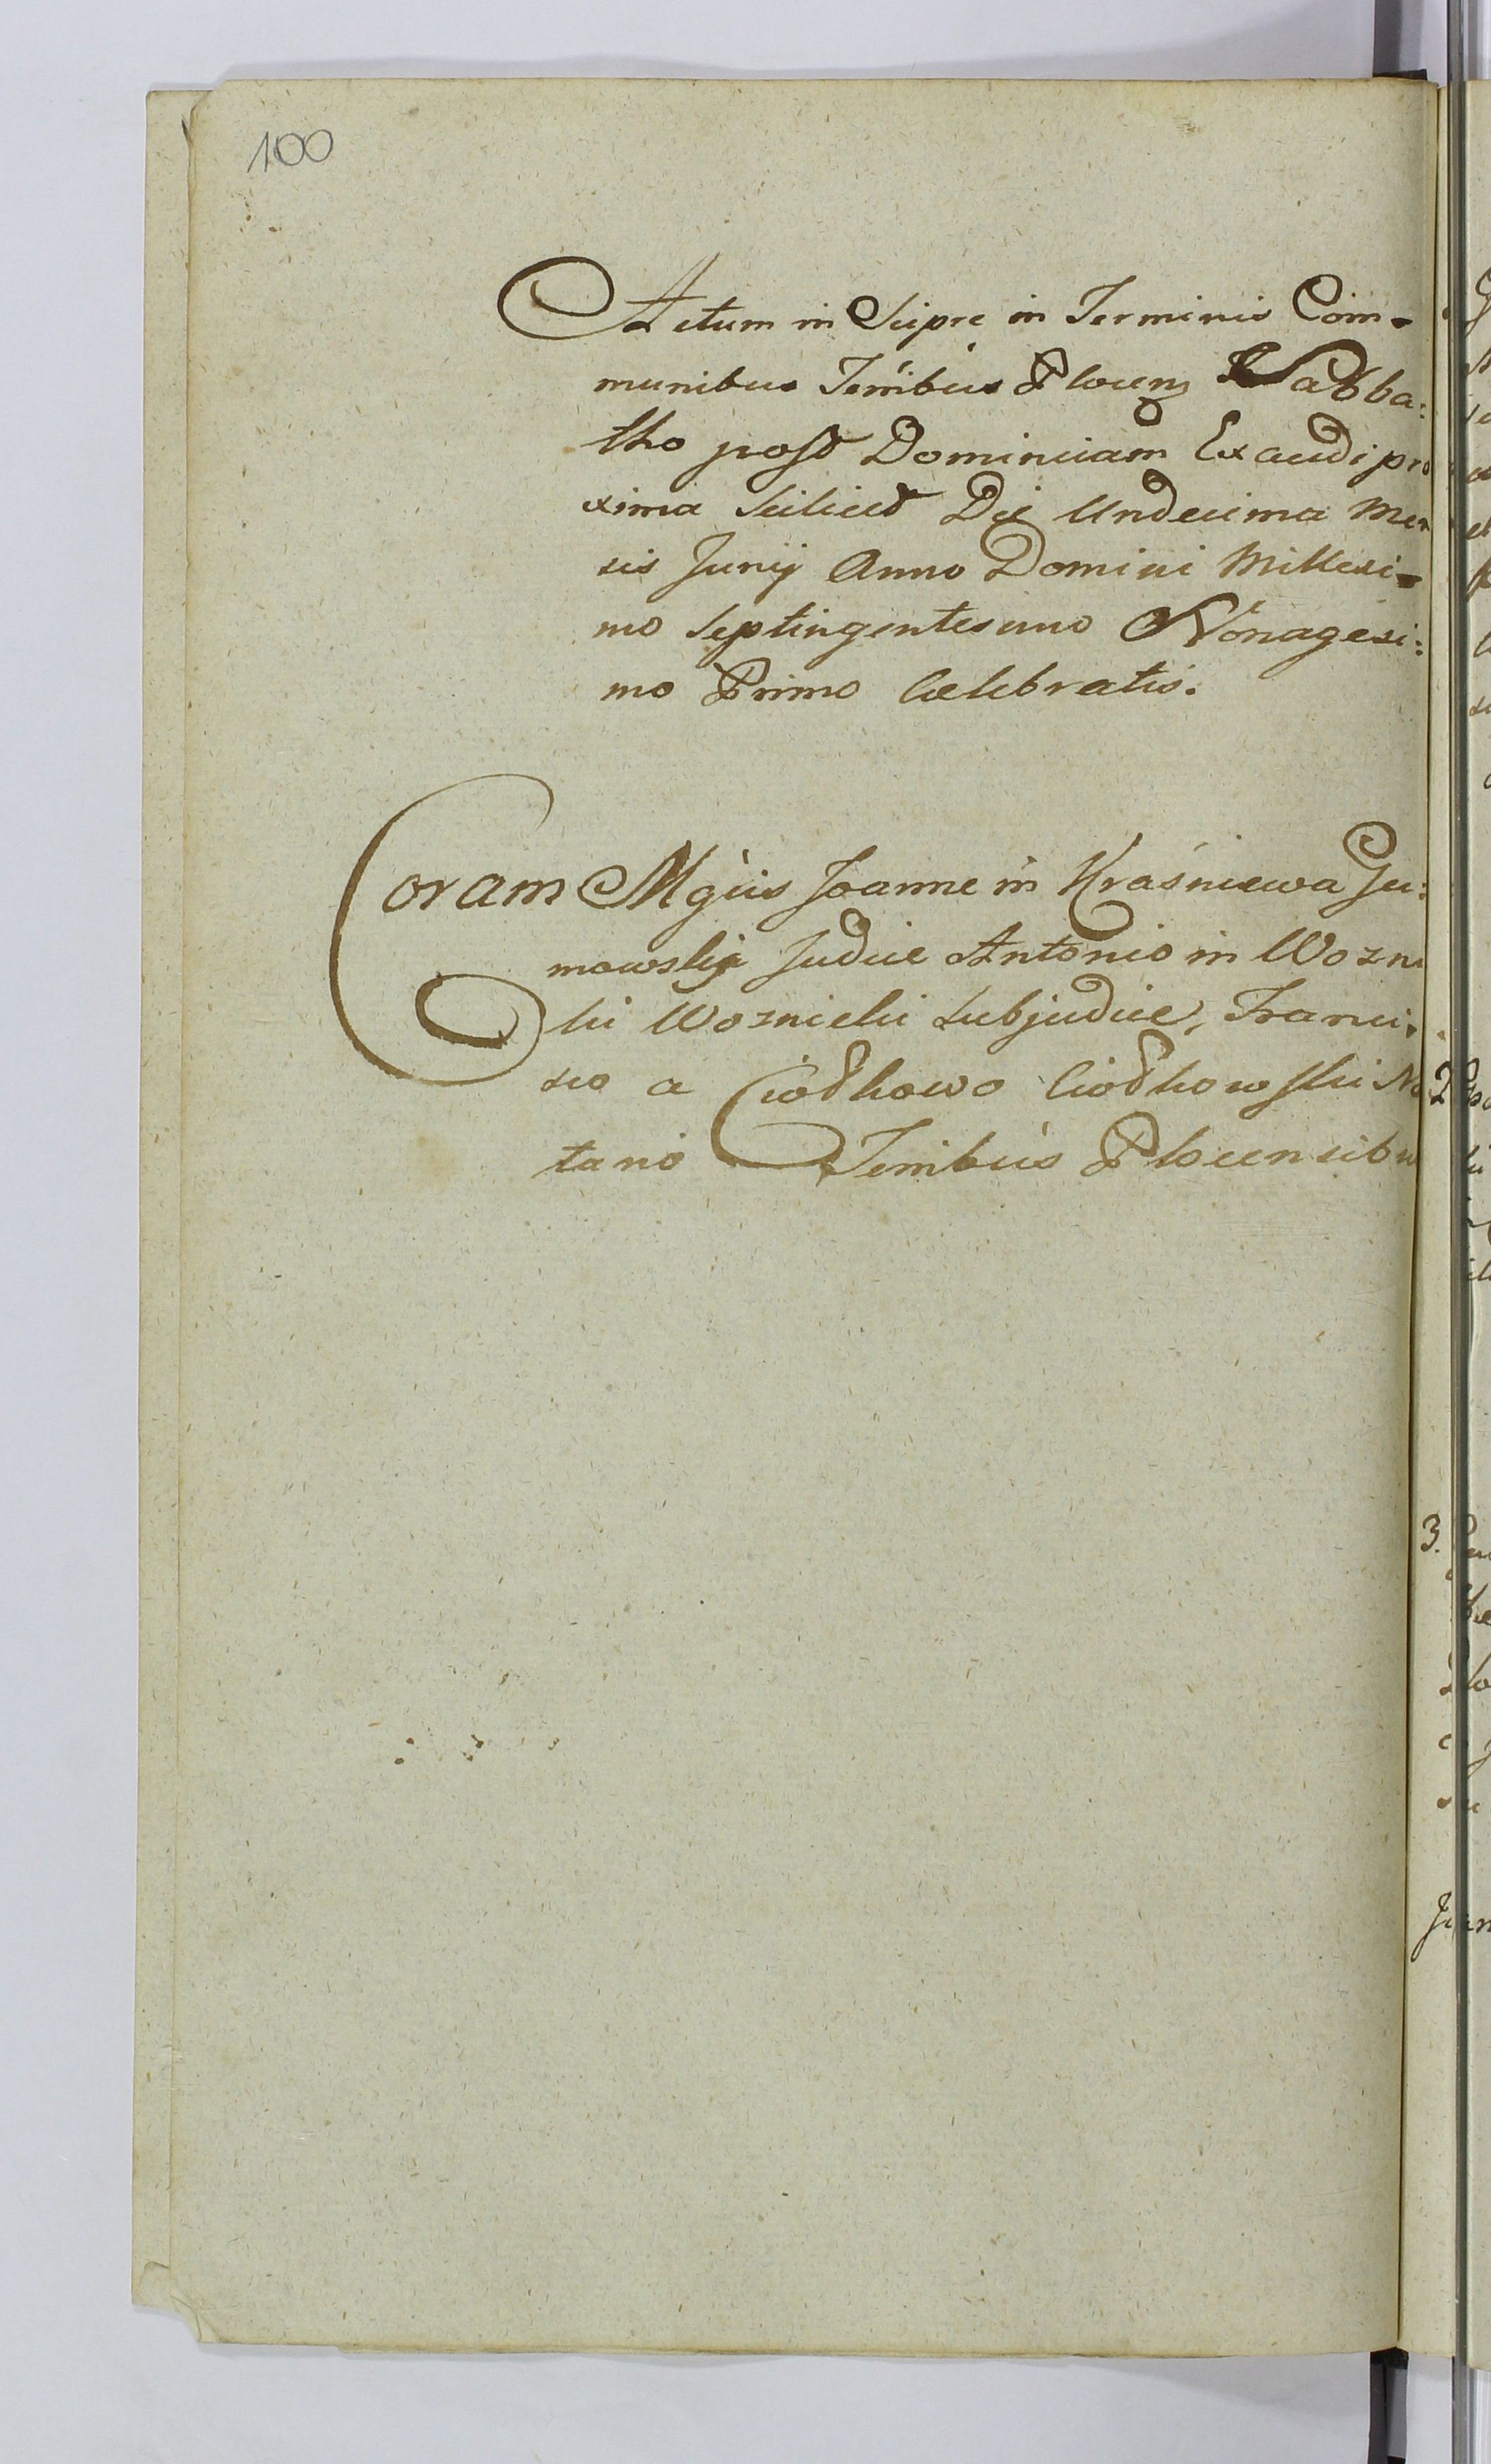 100
Actum in Scipre in Terminis Com-
munibus Terribus Plocen Sabba:
tho post Dominicam Exaudi pro
xima scilicet Die Undecima Men
sis Junij Anno Domini Millesi-
mo Septingentesimo Nonagesi:
mo Primo Celebratis.
Coram Mgcis Joanne in Kraśniewa Ju:
mowskij Judice Antonio in Wozni
ki Woznicki Subjudice, Franci.
sco a Ciodkowo Ciodkowski No
tario Terribus Plocensibus